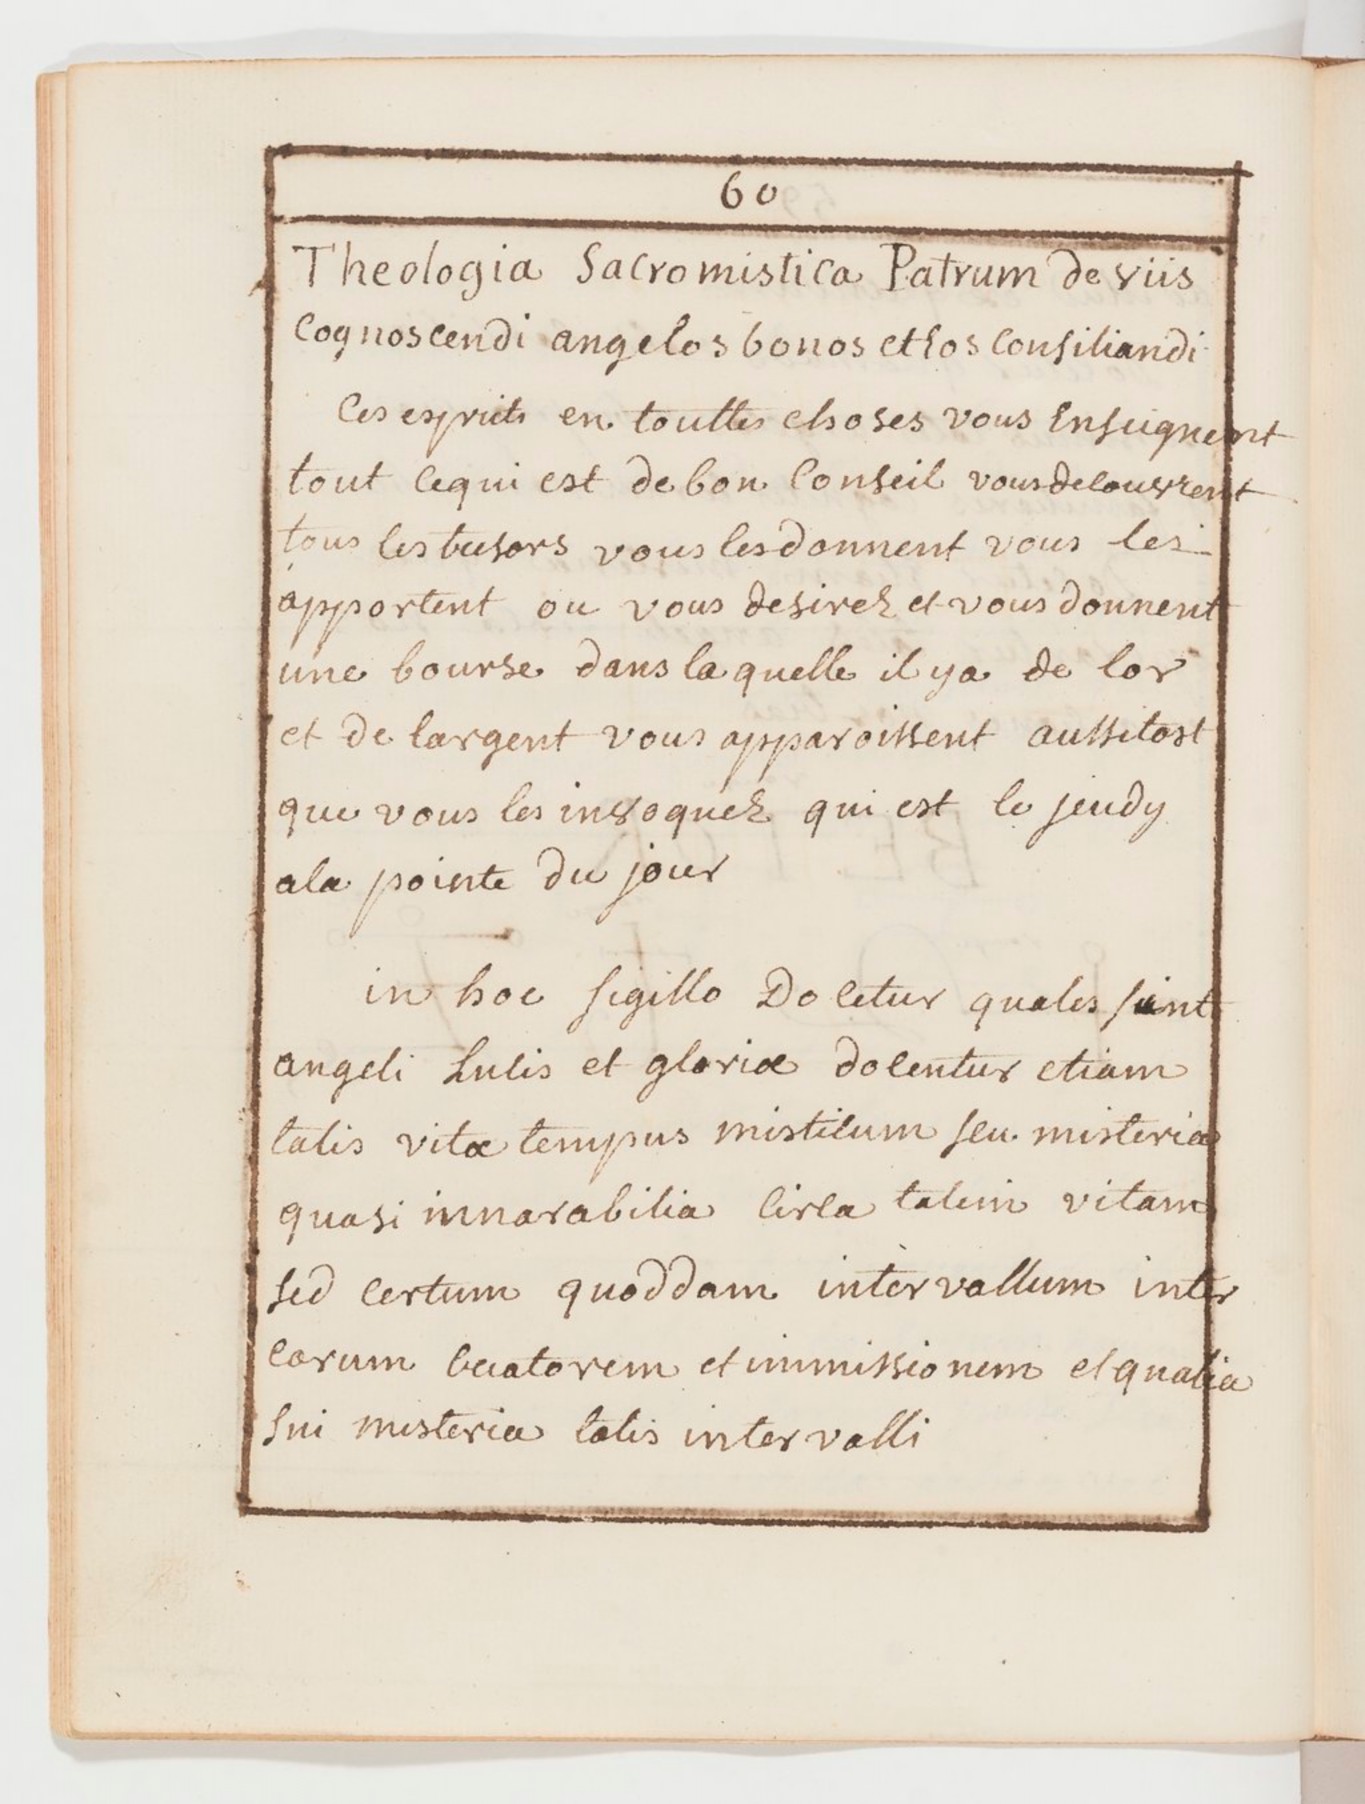 60
Theologia Sacromistica Patrum de viis
cognoscendi angelos bonos et hos consiliandi
Ces esprits en touttes choses vous enseignent
tout cequi est de bon conseil vous decouvrent
tous les tresors vous lesdonnent vous les
apportent ou vous desirez et vous donnent
une bourse dans laquelle il ya de lor
et de largent vous apparoissent aussitost
que vous les invoquez qui est le jeudy
ala pointe du jour
in hoc sigillo Docetur quales sint
angeli lucis et gloriæ docentur etiam
talis vitæ tempus misticum seu misteria
quasi innarabilia circa talem vitam
sed certum quoddam intervallum inter
earum creatorem et immissionem et qualia
sui misteria talis intervalli